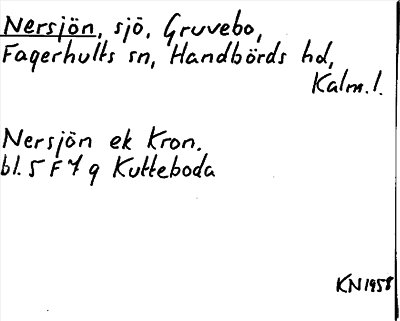 Nersjön, sjö, Gruvebo,
Fagerhults sn, Handbörds hd,
Kalm. l.
Nersjön ek Kron.
bl. 5 F 7 g Kutteboda
KN 1958